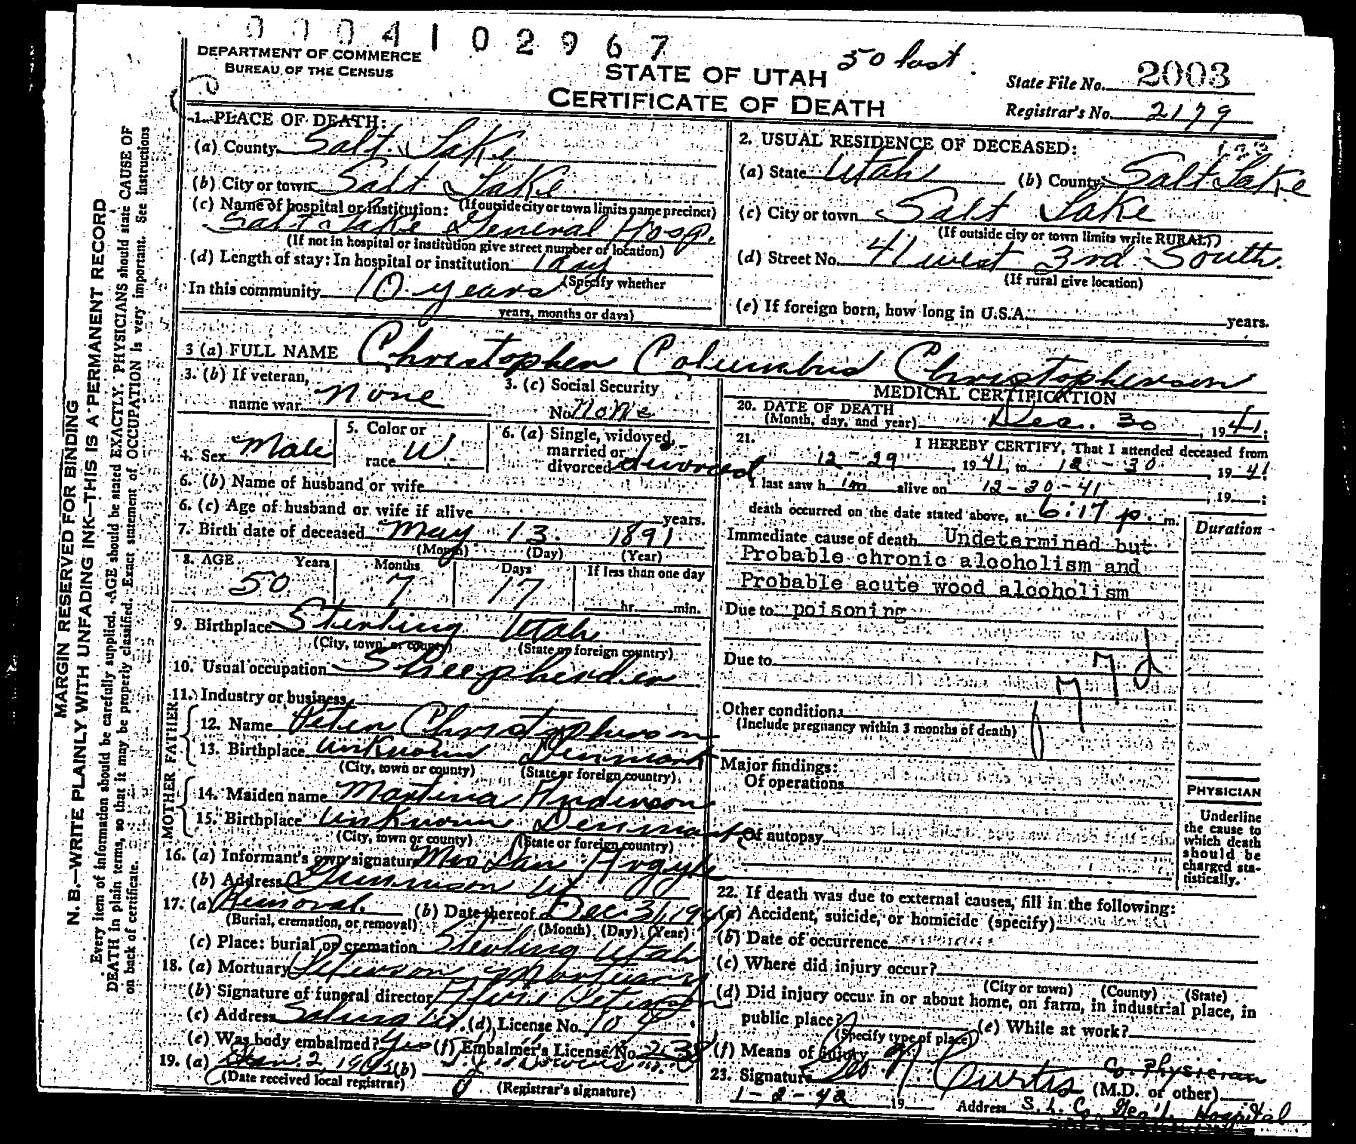 0004102967
DEPARTMENT OF COMMERCE
BUREAU OF THE CENSUS
STATE OF UTAH
CERTIFICATE OF DEATH
50 last.
State File No. 2003
Registrar's No. 2179
MARGIN RESERVED FOR BINDING
N. B.—WRITE PLAINLY WITH UNFADING INK—THIS IS A PERMANENT RECORD
Every item of information should be carefully supplied. AGE should be stated EXACTLY. PHYSICIANS should state CAUSE OF
DEATH in plain terms, so that it may be properly classified. Exact statement of OCCUPATION is very important. See Instructions
on back of certificate.
1. PLACE OF DEATH:
(a) County Salt Lake
(b) City or town Salt Lake
(If outside city or town limits name precinct)
(c) Name of hospital or institution:
Salt Lake General Hosp.
(If not in hospital or institution give street number or location)
(d) Length of stay: In hospital or institution 1 day
(Specify whether
In this community 10 years
years, months or days)
2. USUAL RESIDENCE OF DECEASED:
(a) State Utah (b) County Salt Lake
(c) City or town Salt Lake
(If outside city or town limits write RURAL)
(d) Street No. 41 west 3rd South.
(If rural give location)
(e) If foreign born, how long in U.S.A. years.
3 (a) FULL NAME Christopher Columbus Christopherson
3. (b) If veteran, name war None
3. (c) Social Security No. None
4. Sex Male
5. Color or race W
6. (a) Single, widowed, married or divorced divorced
6. (b) Name of husband or wife
6. (c) Age of husband or wife if alive years.
7. Birth date of deceased May 13 1891
(Month) (Day) (Year)
8. AGE Years Months Days If less than one day
50 7 17 hr. min.
9. Birthplace Sterling Utah
(City, town, or county) (State or foreign country)
10. Usual occupation Sheepherder
11. Industry or business
FATHER
12. Name Peter Christopherson
13. Birthplace Unknown Denmark
(City, town or county) (State or foreign country)
MOTHER
14. Maiden name Martina Anderson
15. Birthplace Unknown Denmark
(City, town or county) (State or foreign country)
16. (a) Informant's own signature Mrs Argyle
(b) Address Gunnison Ut
17. (a) Removal (b) Date thereof Dec. 31, 1941
(Burial, cremation, or removal) (Month) (Day) (Year)
(c) Place: burial or cremation Sterling Utah
18. (a) Mortuary Peterson Mortuary
(b) Signature of funeral director Peterson
(c) Address Salina Ut. (d) License No. 104
(e) Was body embalmed? Yes (f) Embalmer's License No. 238
19. (a) Jan. 2, (b)
(Date received local registrar) (Registrar's signature)
MEDICAL CERTIFICATION
20. DATE OF DEATH
(Month, day, and year) Dec. 30, 1941;
21. I HEREBY CERTIFY, That I attended deceased from
12-29, 1941, to 12-30 1941
I last saw him alive on 12-30-41, 19 ;
death occurred on the date stated above, at 6:17 p. m.
Duration
Immediate cause of death Undetermined but
Probable chronic alcoholism and
Probable acute wood alcoholism
Due to poisoning
Due to
77d
Other conditions
(Include pregnancy within 3 months of death)
Major findings:
Of operations
Of autopsy
PHYSICIAN
Underline
the cause to
which death
should be
charged sta-
tistically.
22. If death was due to external causes, fill in the following:
(a) Accident, suicide, or homicide (specify)
(b) Date of occurrence
(c) Where did injury occur?
(City or town) (County) (State)
(d) Did injury occur in or about home, on farm, in industrial place, in
public place? (e) While at work?
(Specify type of place)
(f) Means of injury
Co. Physician
23. Signature Geo. N. Curtis (M.D. or other)
1-2-42 19 Address S. L. Co. Gen'l. Hospital